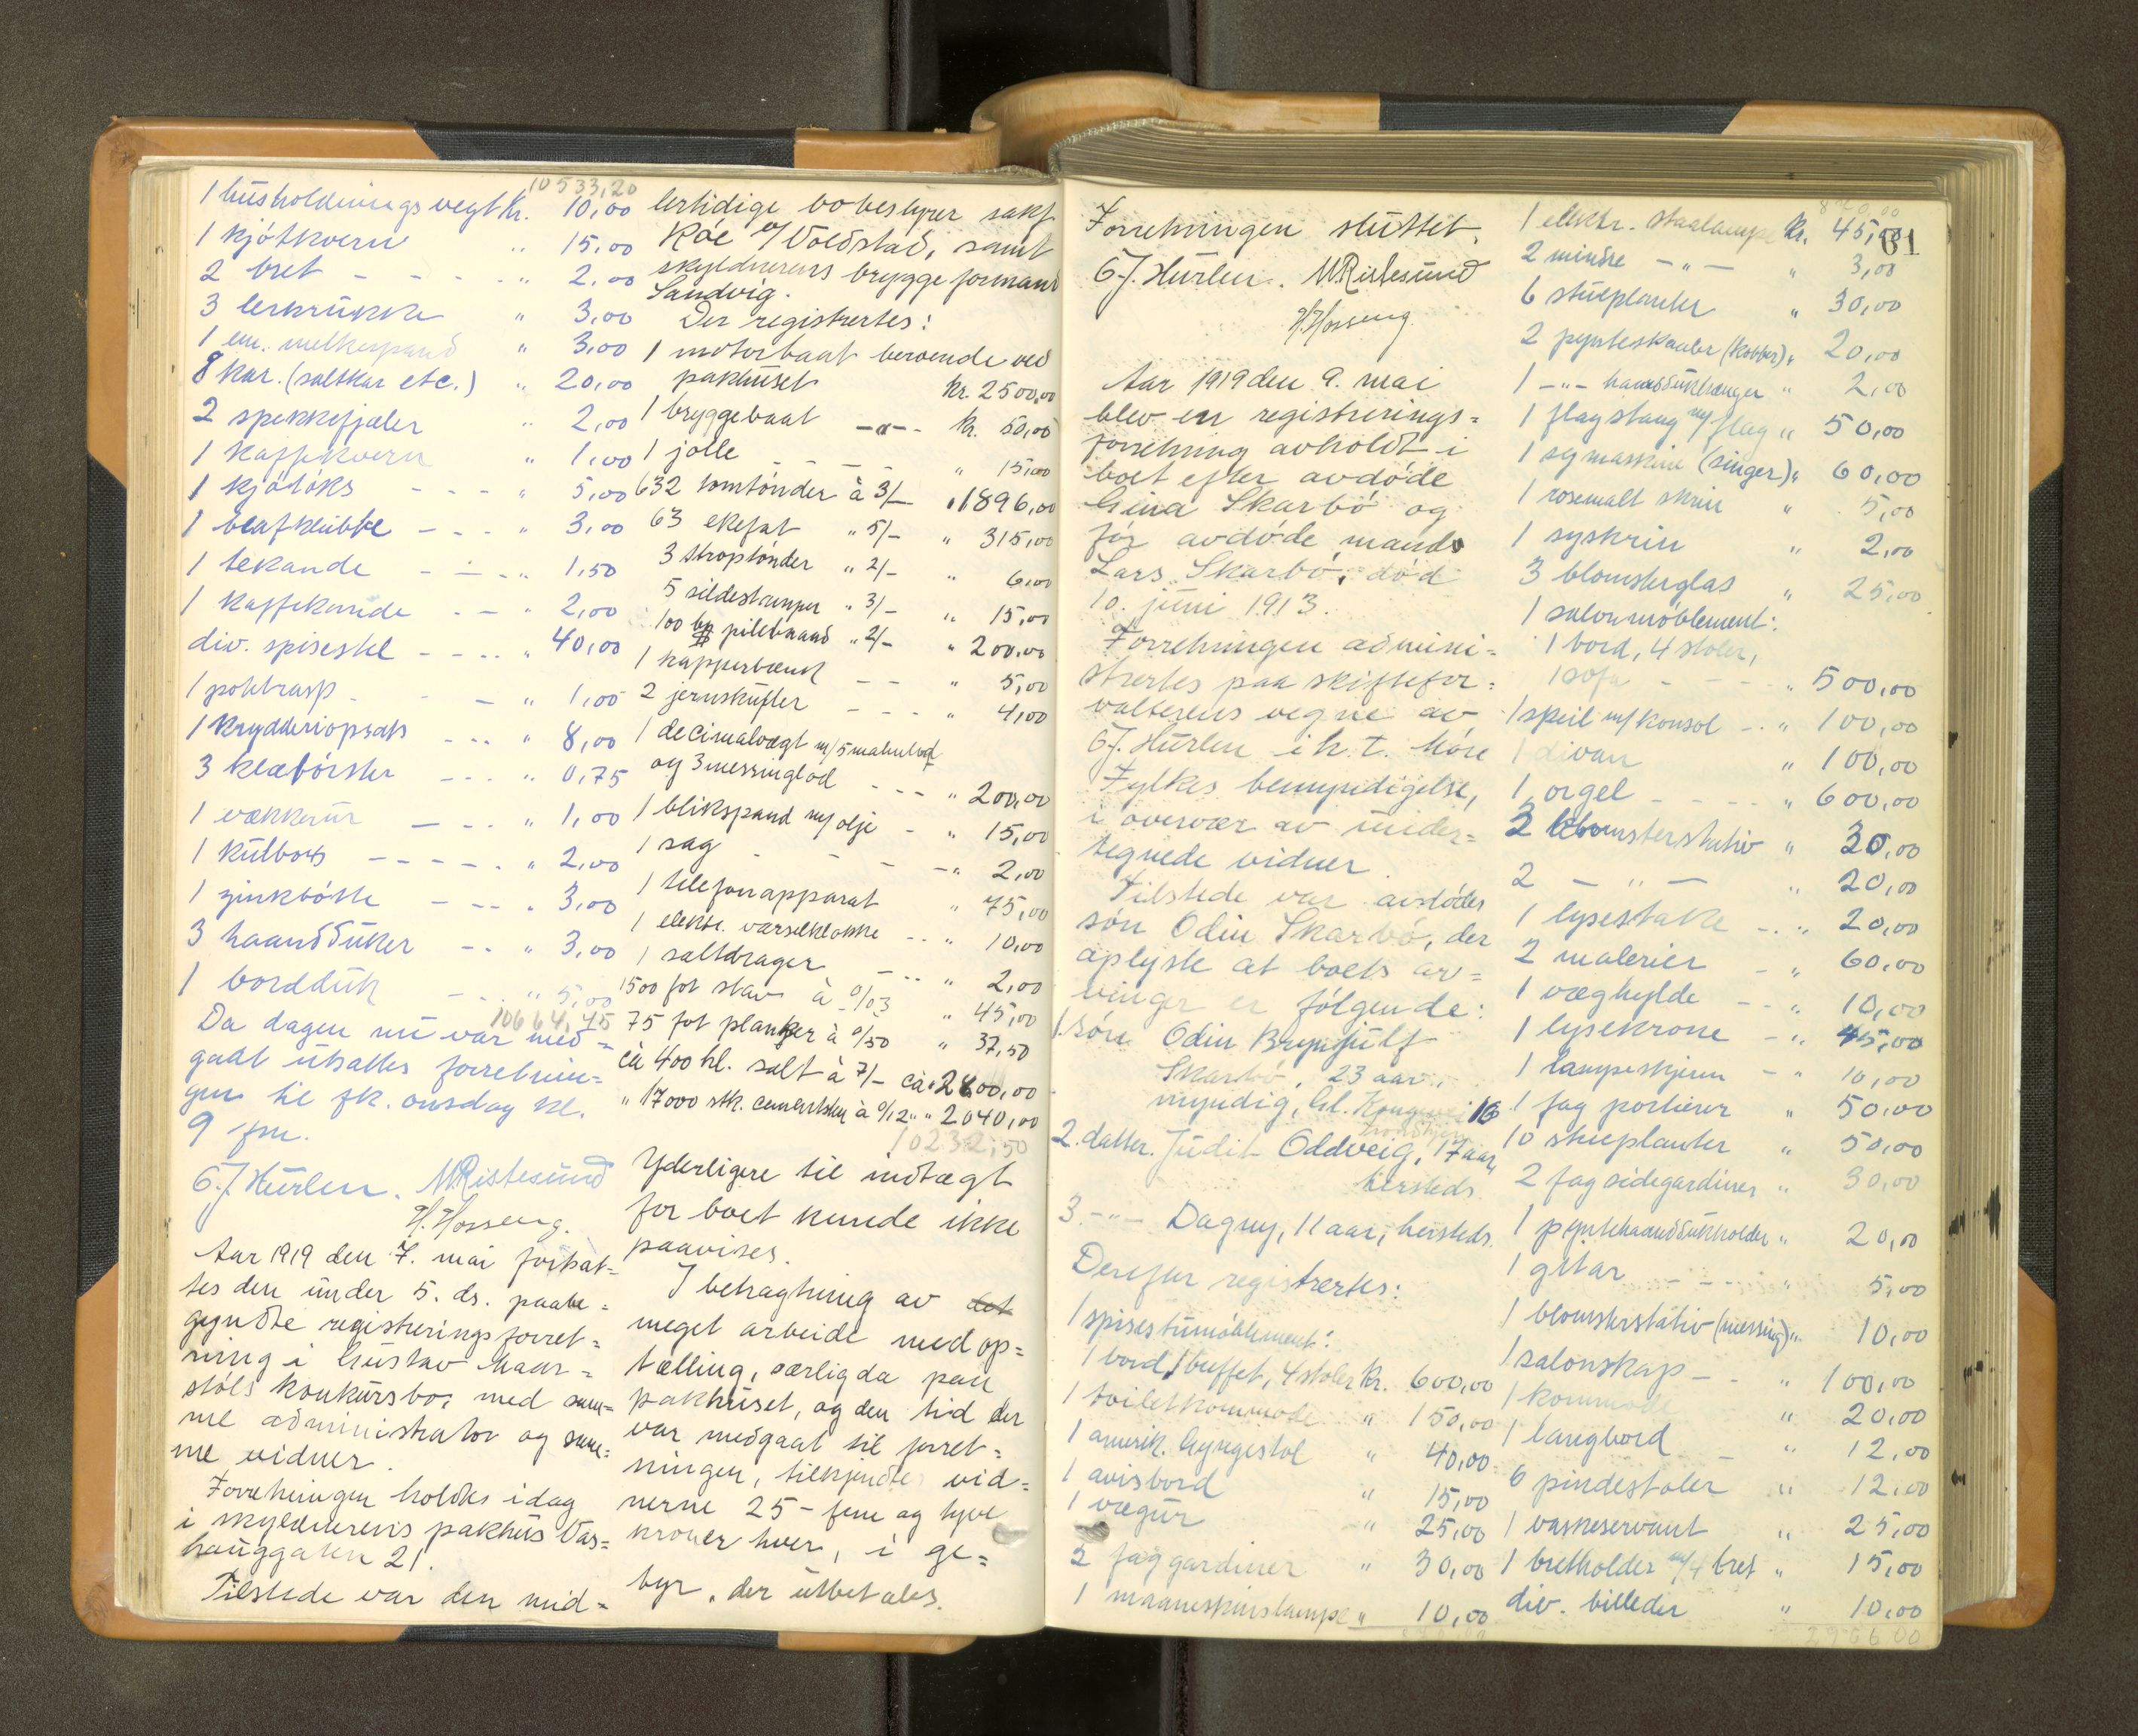 10533,20
1 husholdningsvegt kr. 10,00
1 kjøtkvern " 15,00
2 bret - - - - " 2,00
3 lerkrukke " 3,00
1 em. melkespand " 3,00
8 kar. (saltkar etc.) " 20,00
2 spekkefjæler " 2,00
1 kaffekvern " 1,00
1 kjøtøks - - - " 5,00
1 biafklubbe - - - " 3,00
1 tekande - - - " 1,50
1 kaffekande - - " 2,00
div. spisestel - - - " 40,00
1 potetrasp - - - " 1,00
1 krydderiopsats - - - " 8,00
3 klæbørster - - - " 0,75
1 vækkerur - - - " 1,00
1 kulboks - - - - - " 2,00
1 zinkbøtte - - - " 3,00
3 haandduker - - " 3,00
1 bordduk - - " 5,00
10664,45
Da dagen nu var med=
gaat utsattes forretnin=
gen til fk. onsdag kl.
9 fm.
C. J. Hurlen. M Ristesund
H. Hosseng.
Aar 1919 den 7. mai fortsat=
tes den under 5. ds. paabe=
gyndte registreringsforret=
ning i Gustav Naar=
støls konkursbo, med sam=
me administrator og sam=
me vidner.
Forretningen holdes idag
i skyldnerens pakhus Vas=
hauggaten 21.
Tilstede var den mid=
lertidige bobestyrer sakf
Roe v/Voldstad, samt
skyldnerens bryggeformand
Sandvig.
Der registrertes:
1 motorbaat beroende ved
pakhuset kr. 2500,00
1 bryggebaat -"- kr. 50,00
1 jolle - - - - " 15,00
632 tomtønder à 3/- " 1896,00
63 ekefat " 5/- " 315,00
3 stroptønder " 2/- " 6,00
5 sildestamper " 3/- " 15,00
100 pilebaand " 2/- " 200,00
1 kapperbænk - - " 5,00
2 jernskufler - - - " 4,00
1 decimalvægt m/5 malmlod
og 3 messinglod - - - " 200,00
1 blikspand m/olje - " 15,00
1 sag - - - - " 2,00
1 telefonapparat " 75,00
1 elektr. varselklokke - - " 10,00
1 saltdrager - - - " 2,00
1500 fot stav à 0/03 " 45,00
75 fot planker à 0/50 " 37,50
ca 400 hl. salt à 7/- ca " 2800,00
" 17000 stk. cementsten à 0/12 " " 2040,00
10232,50
Yderligere til indtægt
for boet kunde ikke
paavises.
I betragtning av det
meget arbeide med op=
tælling, særlig da paa
pakhuset, og den tid der
var medgaat til forret=
ningen, tilkjendtes vid=
nerne 25 - fem og tyve
kroner hver, i ge=
byr, der utbetales.
Forretningen sluttet.
C. J. Hurlen. M Ristesund
H. Hosseng
Aar 1919 den 9. mai
blev en registrerings=
forretning avholdt i
boet efter avdøde
Gina Skarbø og
før avdøde mand
Lars Skarbø, død
10. juni 1913.
Forretningen admini=
strertes paa skiftefor=
valterens vegne av
C. J. Hurlen i h. t. Møre
Fylkes bemyndigelse,
i overvær av under=
tegnede vidner.
Tilstede var avdødes
søn Odin Skarbø, der
oplyste at boets ar=
vinger er følgende:
1. søn Odin Brynjulf
Skarbø, 23 aar,
myndig, bl. 16
2. datter. Judit Oddveig, 17 aar,
hersteds.
3. -"- Dagny, 11 aar, hersteds.
Derefter registrertes:
1 spisestumøblement:
1 bord, 1 buffet, 4 stoler kr. 600,00
1 toiletkommode " 150,00
1 amerik. gyngestol " 40,00
1 avisbord " 15,00
1 vægur " 25,00
2 fag gardiner " 30,00
1 maaneskinslampe " 10,00
870,00
61
1 elektr. staalampe kr. 45,00
2 mindre -"- " 3,00
6 stueplanter " 30,00
2 pynteskaaler (kobber) " 20,00
1 -"- haanddukhænger " 2,00
1 flagstang m/ flag " 50,00
1 symaskine (singer) " 60,00
1 rosemalt skrin " 5,00
1 syskrin " 2,00
3 blomsterglas " 25,00
1 salonmøblement:
1 bord, 4 stoler,
1 sofa - - - - " 500,00
1 speil m/konsol - " 100,00
1 divan " 100,00
1 orgel - - - - " 600,00
2 blomsterstativ " 30,00
2 -"- " 20,00
1 lysestake - - " 20,00
2 malerier - " 60,00
1 væghylde - - " 10,00
1 lysekrone - " 45,00
1 lampeskjerm - " 10,00
1 fag portierer " 50,00
10 stueplanter " 50,00
2 fag sidegardiner " 30,00
1 pyntehaanddukholder " 20,00
1 gitar - - - - " 5,00
1 blomsterstativ (messing) " 10,00
1 salonskap - - " 100,00
1 kommode " 20,00
1 langbord " 12,00
6 pindestoler " 12,00
1 vaskeservant " 25,00
1 bretholder m/4 bret " 15,00
div. billeder " 10,00